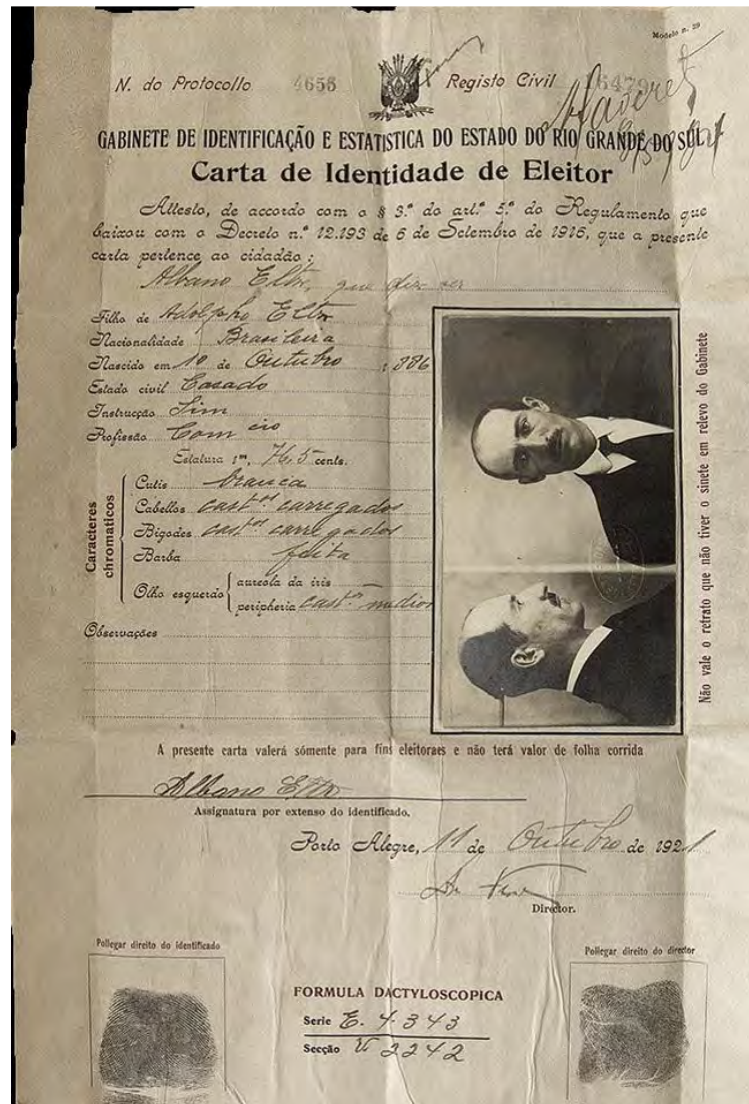 Modelo n. 29
N. do Protocollo 4656 Registo Civil 6479
GABINETE DE IDENTIFICAÇÃO E ESTATISTICA DO ESTADO DO RIO GRANDE DO SUL
Carta de Identidade de Eleitor
Attesto, de accordo com o § 3.º do art.º 5.º do Regulamento que
baixou com o Decreto n.º 12.193 de 6 de Setembro de 1916, que a presente
carta pertence ao cidadão:
Albano Eltz, que diz ser
Filho de Adolpho Eltz
Nacionalidade Brasileira
Nascido em 1º de Outubro 1886
Estado civil Casado
Instrucção Sim
Profissão Comcio
Estatura 1m, 76,5 cents.
Caracteres chromaticos
Cutis branca
Cabellos castos carregados
Bigodes castos carregados
Barba feita
Olho esquerdo
aureola da iris
peripheria castos medios
Observações
Não vale o retrato que não tiver o sinete em relevo do Gabinete
A presente carta valerá sómente para fins eleitoraes e não terá valor de folha corrida
Albano Eltz
Assignatura por extenso do identificado.
Porto Alegre, 11 de Outubro de 1921
Director.
Pollegar direito do identificado
Pollegar direito do director
FORMULA DACTYLOSCOPICA
Serie E. 4343
Secção 2242